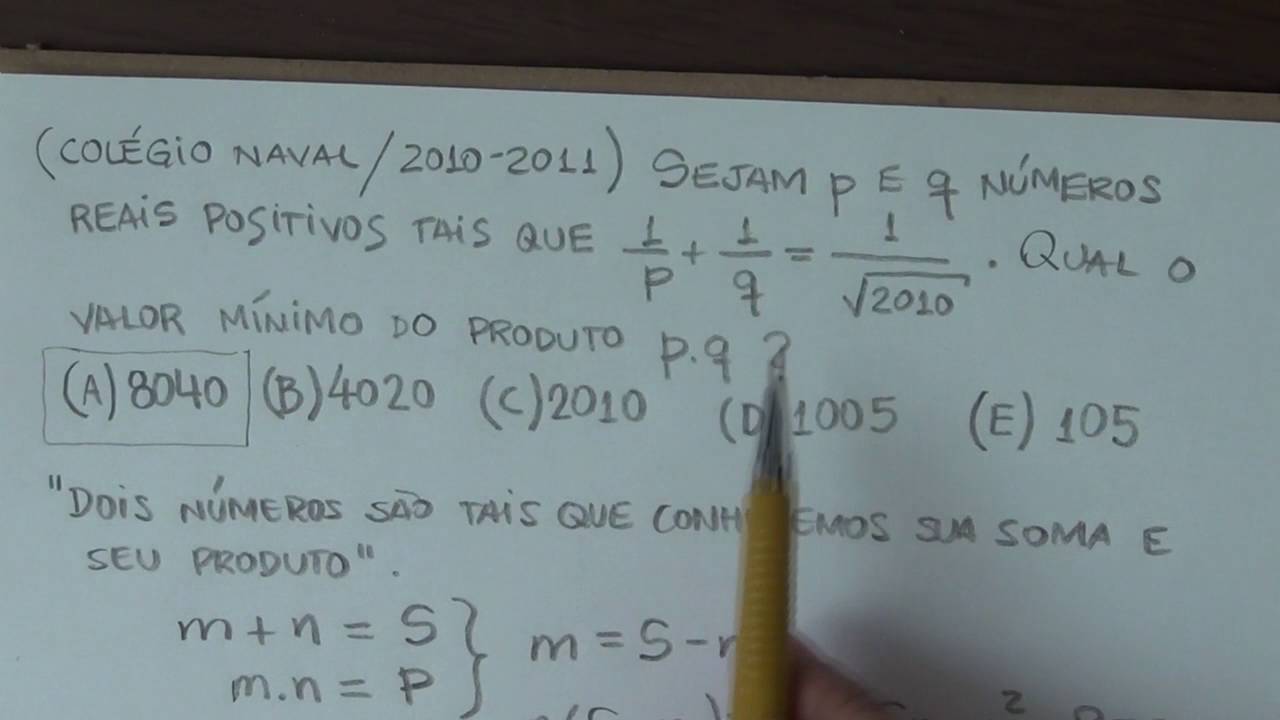 (COLÉGIO NAVAL/2010-2011) SEJAM p E q NÚMEROS
REAIS POSITIVOS TAIS QUE 1/p + 1/q = 1/√2010 . QUAL O
VALOR MÍNIMO DO PRODUTO p.q ?
(A) 8040 (B) 4020 (C) 2010 (D) 1005 (E) 105
"DOIS NÚMEROS SÃO TAIS QUE SUA SOMA E
SEU PRODUTO".
m + n = S } m = S -
m.n = P